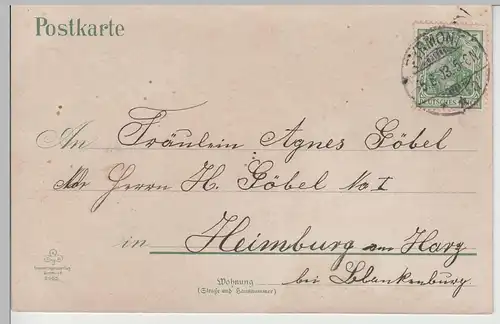 Postkarte
DEUTSCHES
An Fräulein Agnes Göbel
Adr Herrn H. Göbel No I
in Heimburg am Harz
Wohnung
(Straße und Hausnummer)
bei Blankenburg.